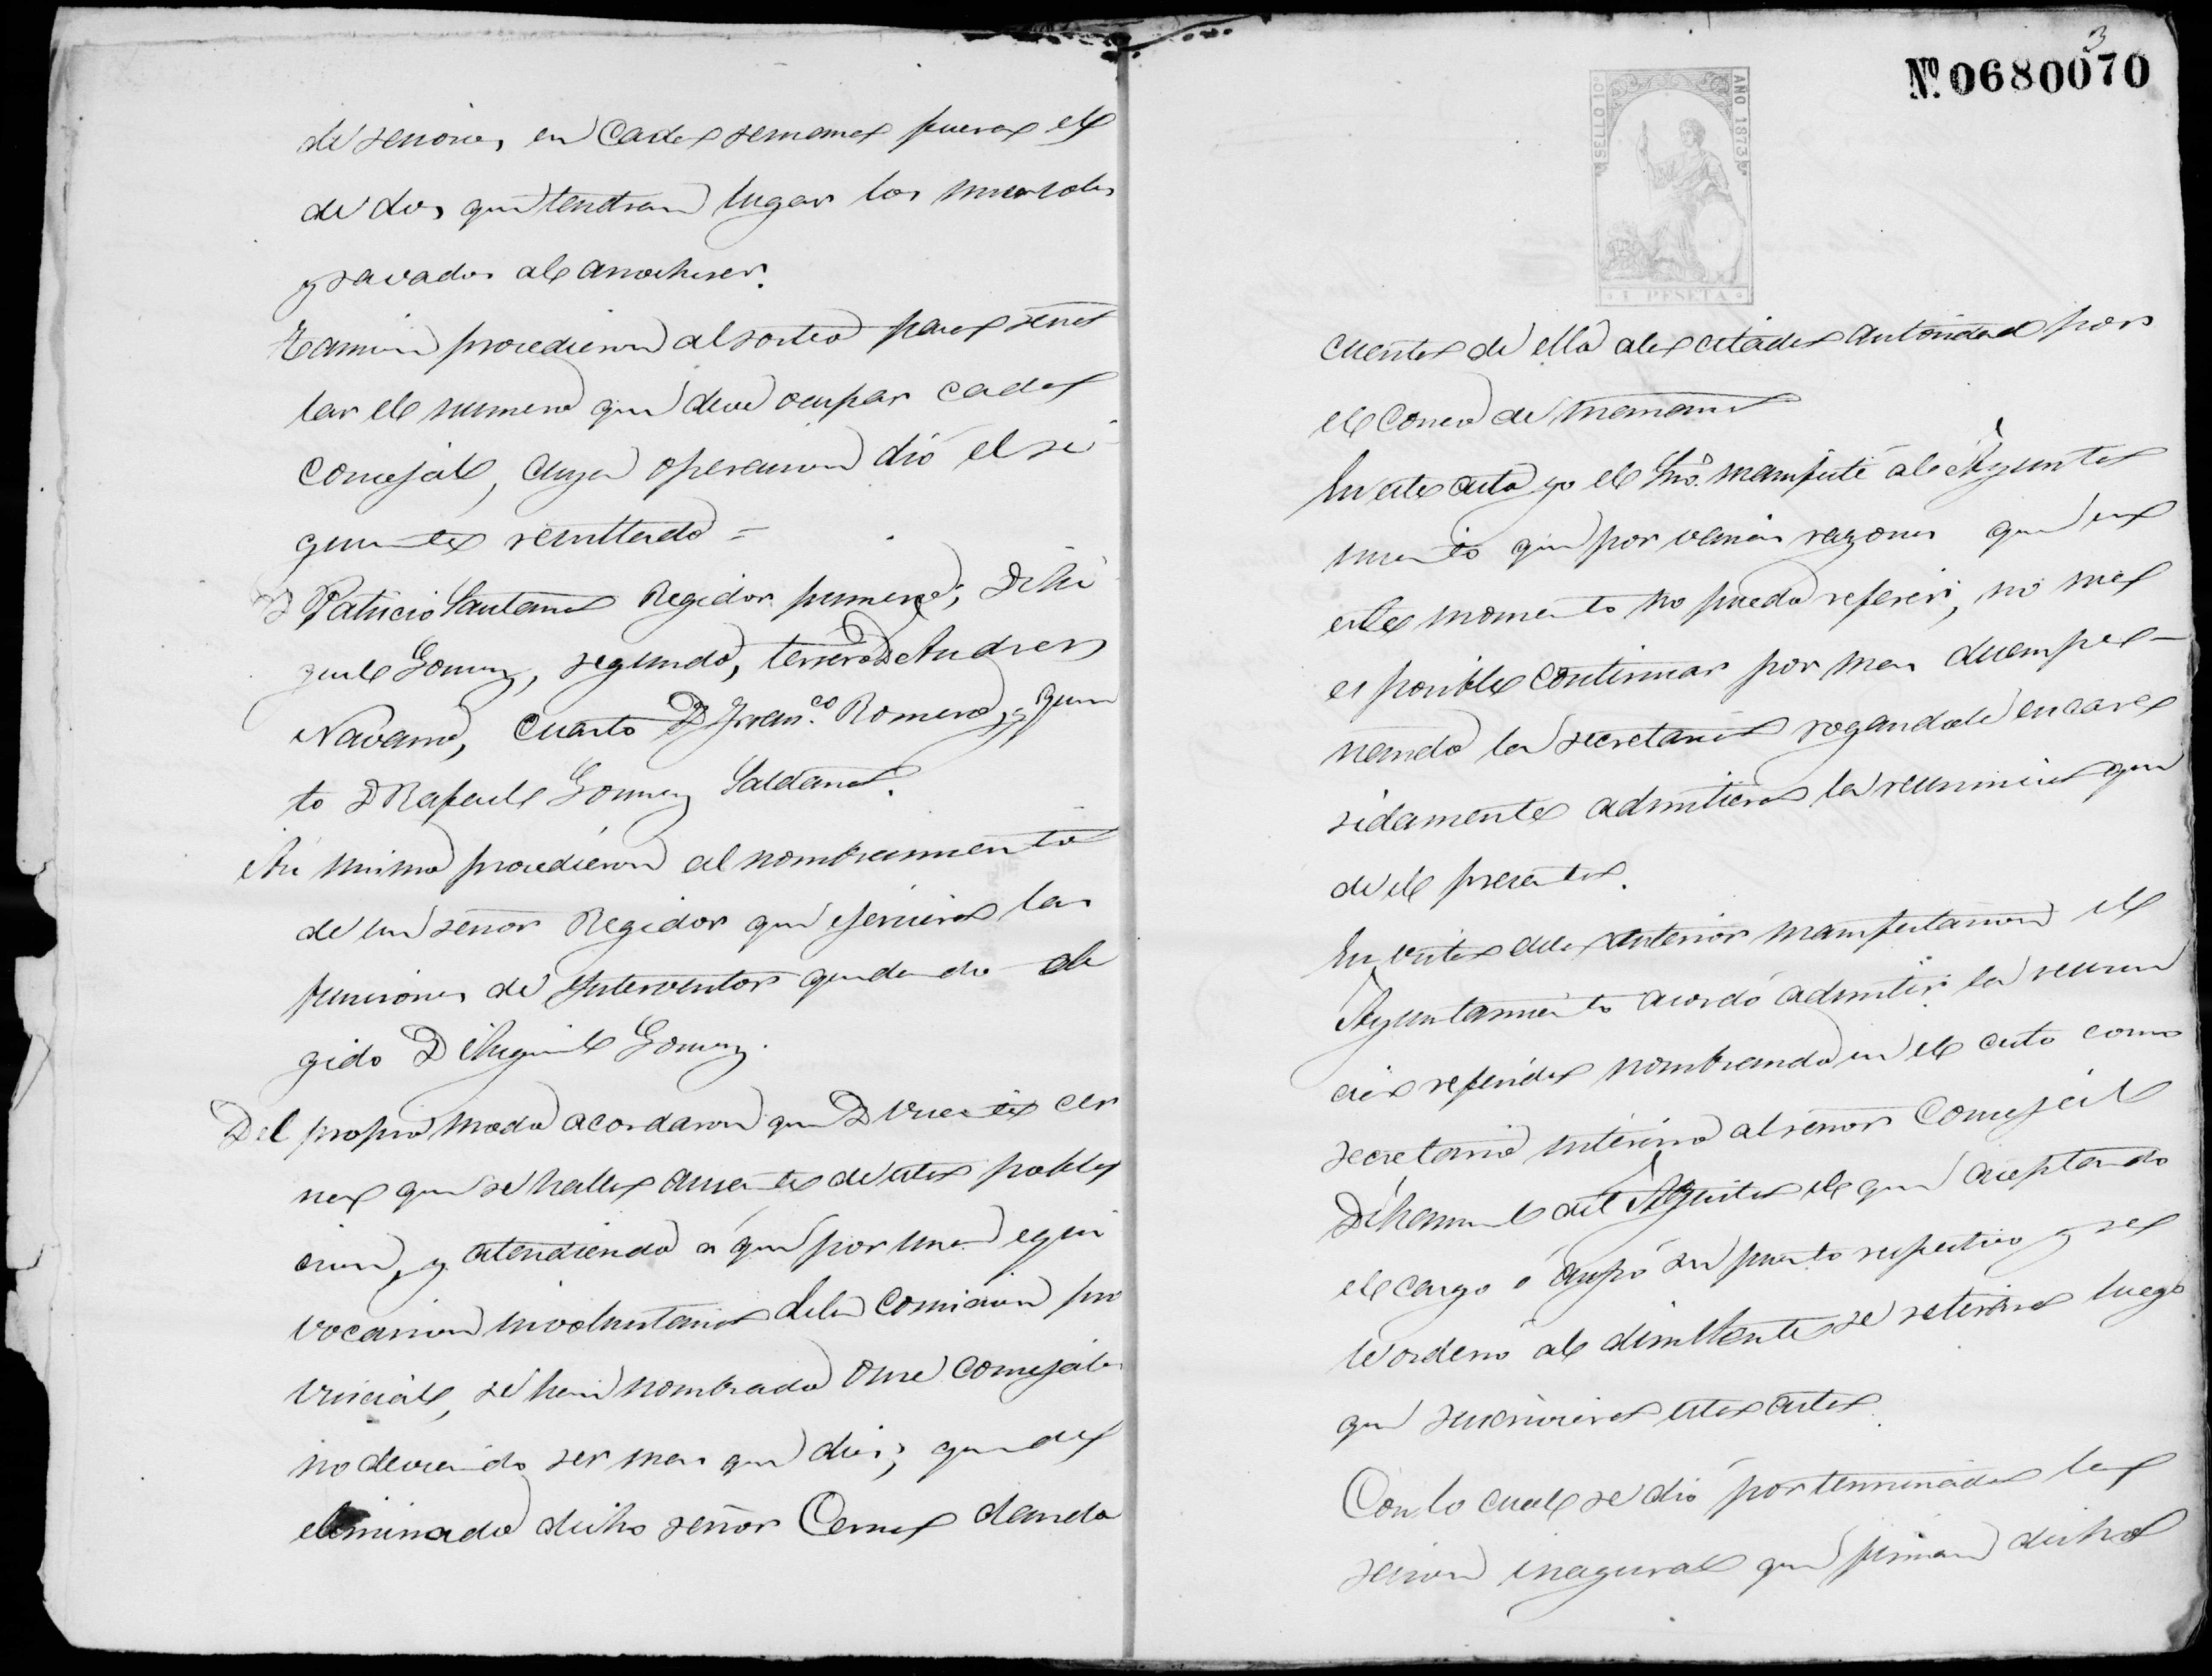 de seciones en cada semana fuera el
de dos que tendran lugar los miercoles
y savados al anochecer.
Tamvien procedieron al sorteo para seña
lar el numero que deve ocupar cada
concejal, cuya operacion dió el si
guiente resultado =
D Patricio Santana Regidor primero; D Mi
guel Gomez, segundo, tercero D Andres
Navarro, cuarto D Fran.co Romero, y quin
to D Rafael Gomez Saldaña.
Asi mismo procedieron al nombramiento
de un señor Regidor que ejerciera las
funciones de Interventor quedando ele
gido D Miguel Gomez.
Del propio modo acordaron que D Vicente Cer
na que se halla ausente de esta pobla
cion, y atendiendo a que por una equi
vocacion involuntaria dela Comicion pro
vincial, se han nombrado once concejales
no deviendo ser mas que dies; queda
eliminado dicho señor Cerna dando
3
No. 0680070
SELLO 10º
AÑO 1873
1 PESETA
cuenta de ello ala citada autoridad por
el correo de mañana
En este acto yo el Srio. manifesté al Ayunta
miento que por varias razones que en
este momento no puedo referir, no me
es posible continuar por mas desempe
ñando la secretaria rogandole encare
sidamente admitiera la renuncia que
de el presenta.
En vista dela anterior manifestacion el
Ayuntamiento acordó admitir la renun
cia referida nombrando en el acto como
secretario interino al señor Concejal
D Manuel del Aguila el que aceptando
el cargo ocupó su puesto respectivo y se
le ordenó al dimitente se retirara luego
que suscriviera esta acta.
Con lo cual se dió por terminada la
secion inagural que firman dichos